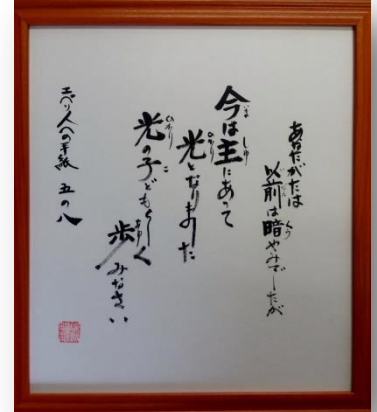 あなたがたは
以前は暗やみでしたが
今は主にあって
光となりました
光の子どもらしく
歩みなさい
エペソ人への手紙 五の八